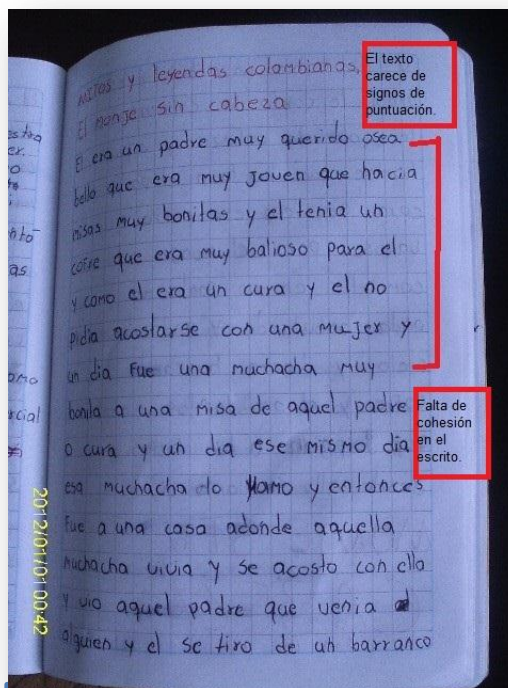 mitos y leyendas colombianas.
El monje sin cabeza
El era un padre muy querido osea
bello que era muy joven que hacia
misas muy bonitas y el tenia un
cofre que era muy balioso para el
y como el era un cura y el no
pidia acostarse con una mujer y
un dia fue una muchacha muy
bonita a una misa de aquel padre
o cura y un dia ese mismo dia
esa muchacha lo llamo y entonces
fue a una casa adonde aquella
muchacha vivia y se acosto con ella
y vio aquel padre que venia
alguien y el se tiro de un barranco
El texto
carece de
signos de
puntuación.
Falta de
cohesión
en el
escrito.
2012/01/01 00:42